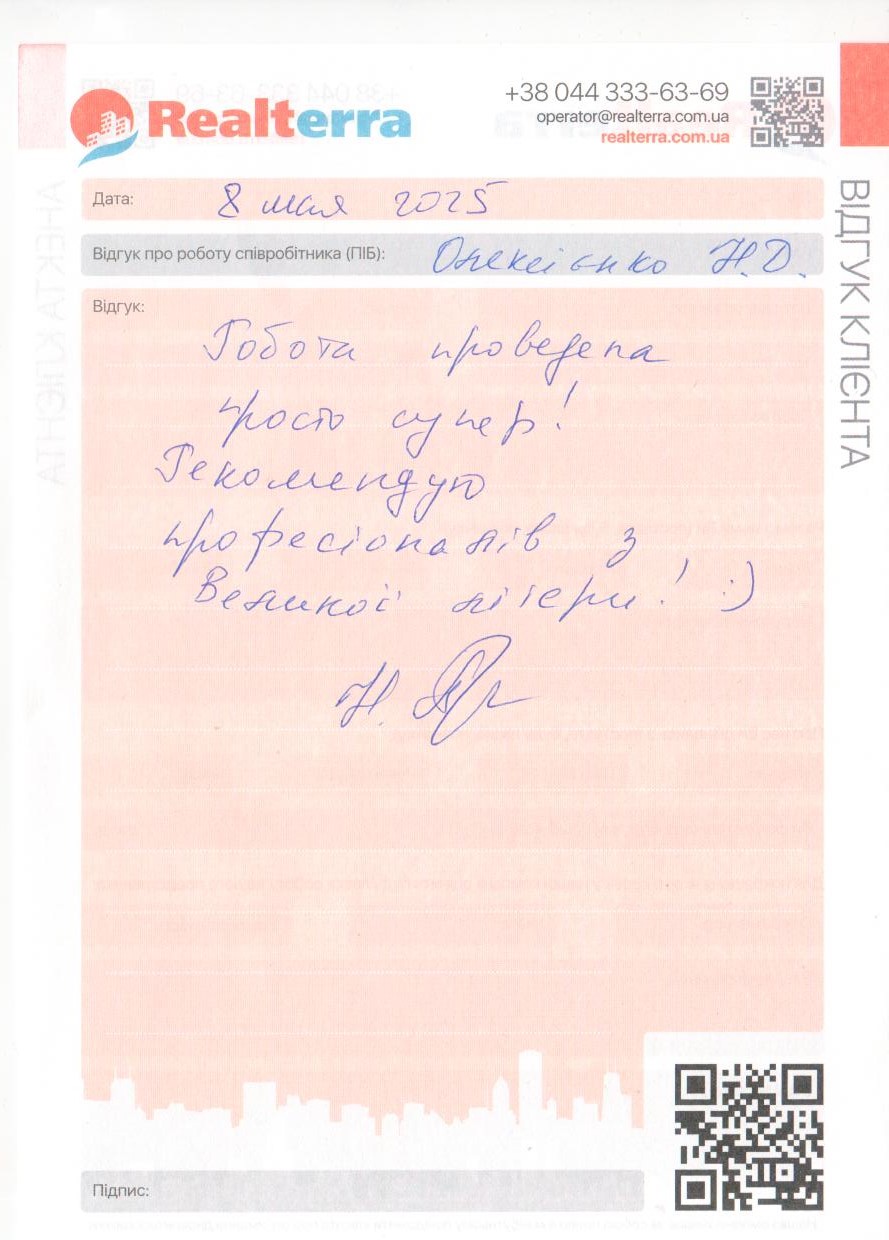 Realterra
+38 044 333-63-69
operator@realterra.com.ua
realterra.com.ua
ВІДГУК КЛІЄНТА
Дата: 8 мая 2025
Відгук про роботу співробітника (ПІБ): Олексієнко Н.Д.
Відгук:
Робота проведена
просто супер!
Рекомендую
професіоналів з
Великої літери! :)
Н.
Підпис: